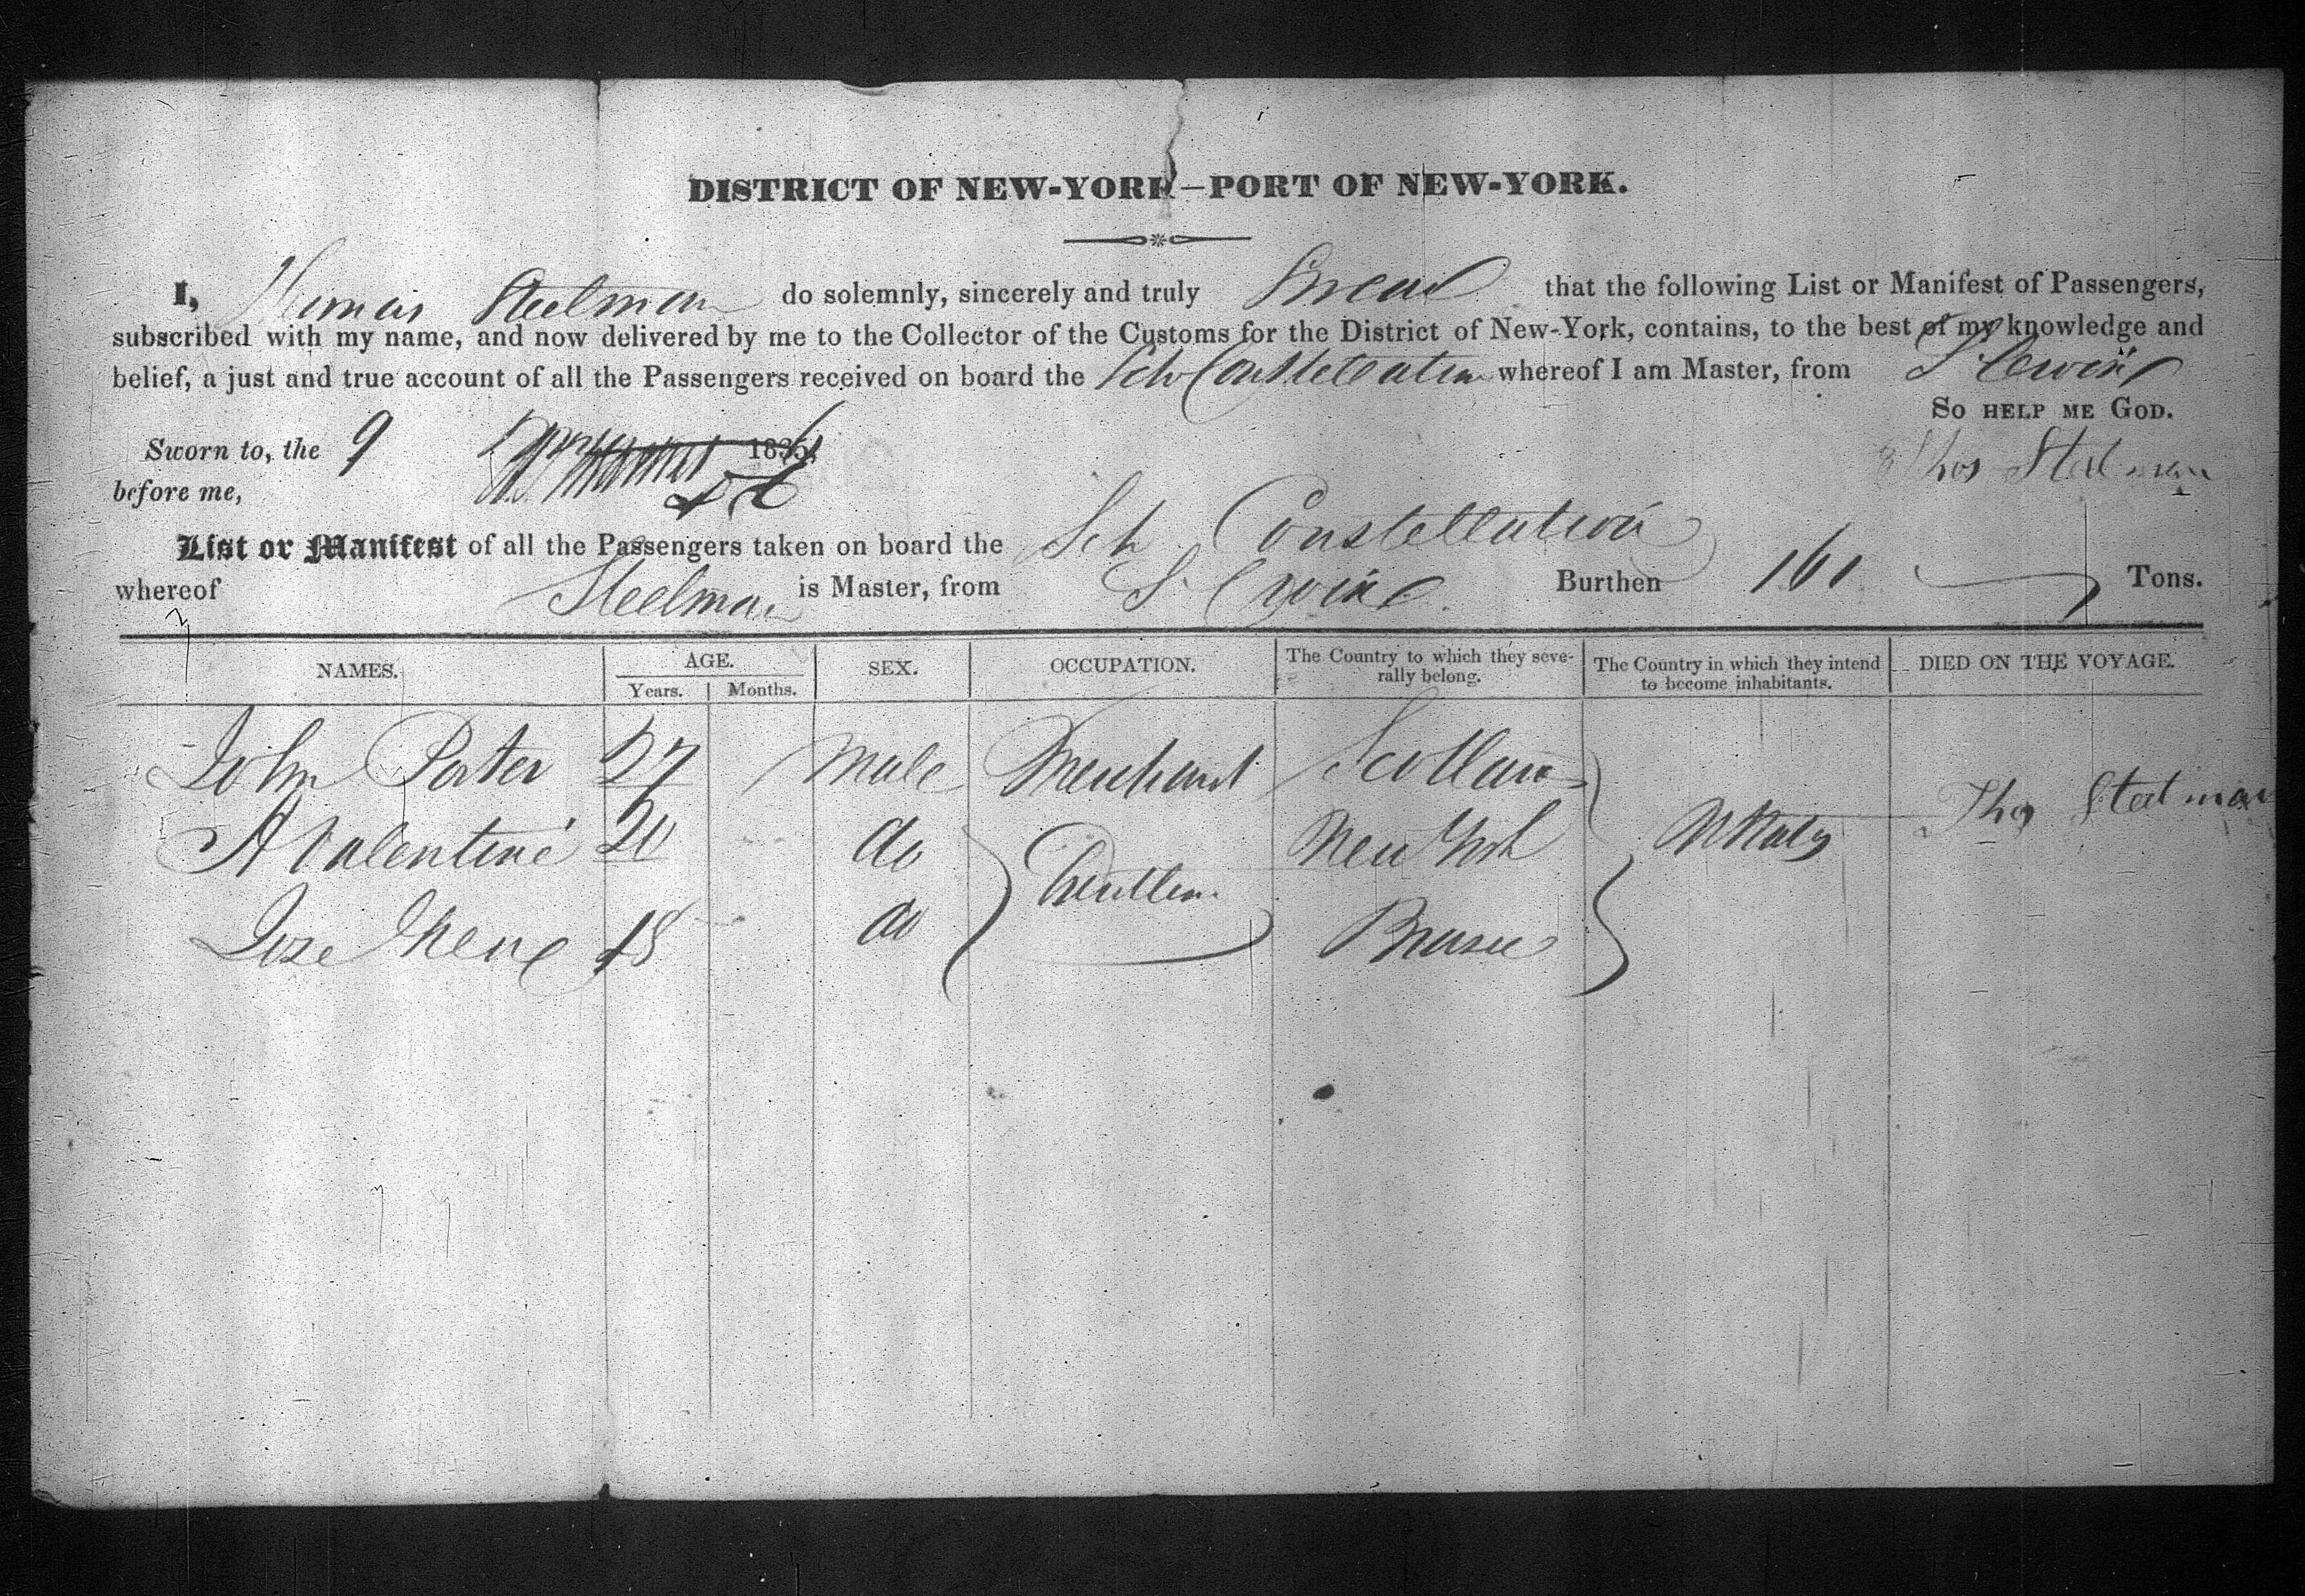 DISTRICT OF NEW-YORK—PORT OF NEW-YORK.
I, Thomas Steelman do solemnly, sincerely and truly Swear that the following List or Manifest of Passengers,
subscribed with my name, and now delivered by me to the Collector of the Customs for the District of New-York, contains, to the best of my knowledge and
belief, a just and true account of all the Passengers received on board the Sch Constellation whereof I am Master, from
So HELP ME GOD.
Sworn to, the 9 1836
Thos Steelman
before me,
List or Manifest of all the Passengers taken on board the Sch Constellation
whereof Steelman is Master, from Burthen 161 Tons.
NAMES. AGE. SEX. OCCUPATION. The Country to which they seve- The Country in which they intend DIED ON THE VOYAGE.
Years. Months. rally belong. to become inhabitants.
John Porter 27 Male Merchant Scotland
Thos Steelman
A Valentine 20 do New York U States
Gentlen
Jose 18 do